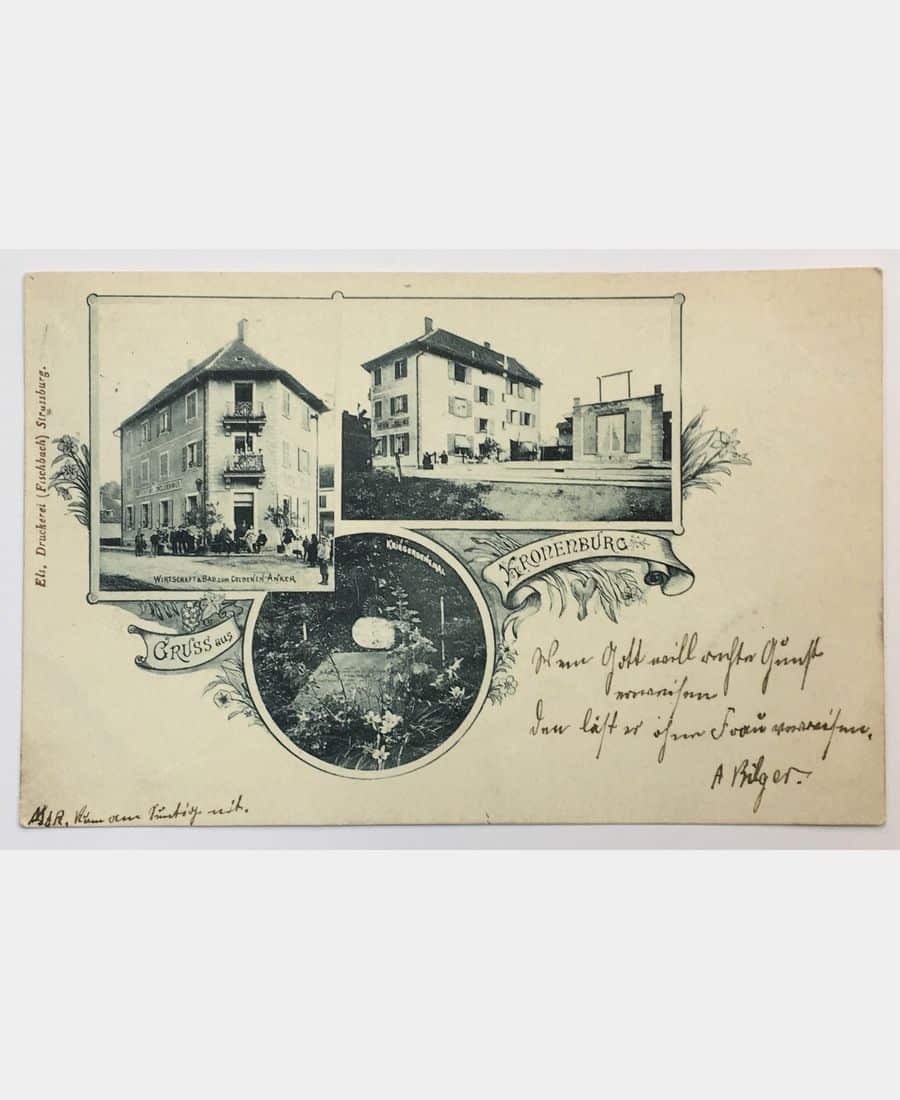 Els. Druckerei (Fischbach) Strassburg.
WIRTSCHAFT & BAD ZUM GOLDENEN ANKER
KRIEGERDENKMAL
KRONENBURG
GRUSS aus
Wem Gott will rechte Gunst
erweisen
Den läst er ohne Frau verreisen.
A Bilger.
am